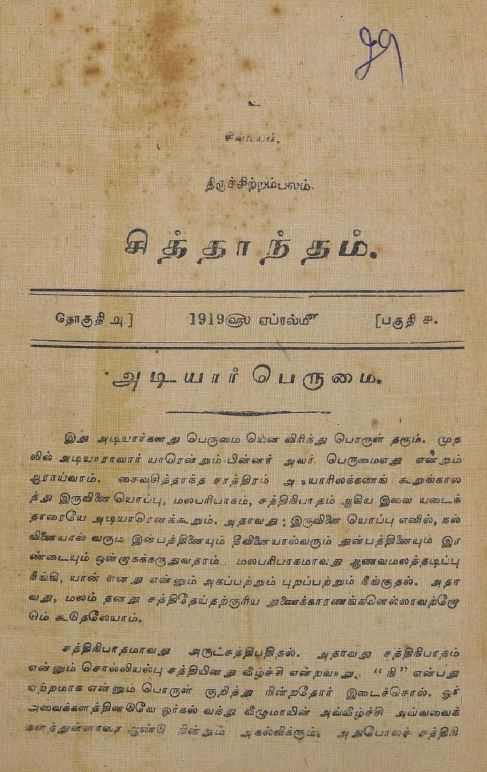 உ
சிவமயம்.
திருச்சிற்றம்பலம்.
சித்தாந்தம்.
தொகுதி அ.] 1919௵ ஏப்ரல்௴ [பகுதி ச.
அடியார் பெருமை.
இது அடியார்களது பெருமை யென விரிந்து பொருள் தரும். முத
லில் அடியாராவார் யாரென்றும் பின்னர் அவர் பெருமைஎது என்றும்
ஆராய்வாம். சைவசித்தாந்த சாத்திரம் அடியாரிலக்கணங் கூறுங்கால
த்து இருவினை யொப்பு, மலபரிபாகம், சத்திநிபாதம் ஆகிய இவை யடைந்
தாரையே அடியாரெனக்கூறும். அதாவது: இருவினை யொப்பு எனில், நல்
வினையால் வரும் இன்பத்தினையும் தீவினையால்வரும் துன்பத்தினையும் இர
ண்டையும் ஒன்றாகக்கருதுவதாம். மலபரிபாகமாவது ஆணவமலத்தடிப்பு
நீங்கி, யான் எனது என்னும் அகப்பற்றும் புறப்பற்றும் நீங்குதல். அதா
வது, மலம் தனது சத்திதேய்தற்குரிய துணைக்காரணங்களெல்லாவற்றோ
டும் கூடுதலேயாம்.
சத்திநிபாதமாவது அருட்சத்திபதிதல். அதாவது சத்திநிபாதம்
என்னும் சொல்லியல்பு சத்தியினது வீழ்ச்சி என்றவாறு. “நி” என்பது
ஏற்றமாக என்னும் பொருள் குறித்து நின்றதோர் இடைச்சொல். ஓர்
அவைக்களத்தினடுவே ஓர்கல் வந்து வீழுமாயின் அவ்வீழ்ச்சி அவ்வவைக்
களத்துள்ளாரை துண்டு நின்றும் அகல்விக்கும். அதுபோலச் சத்திநி